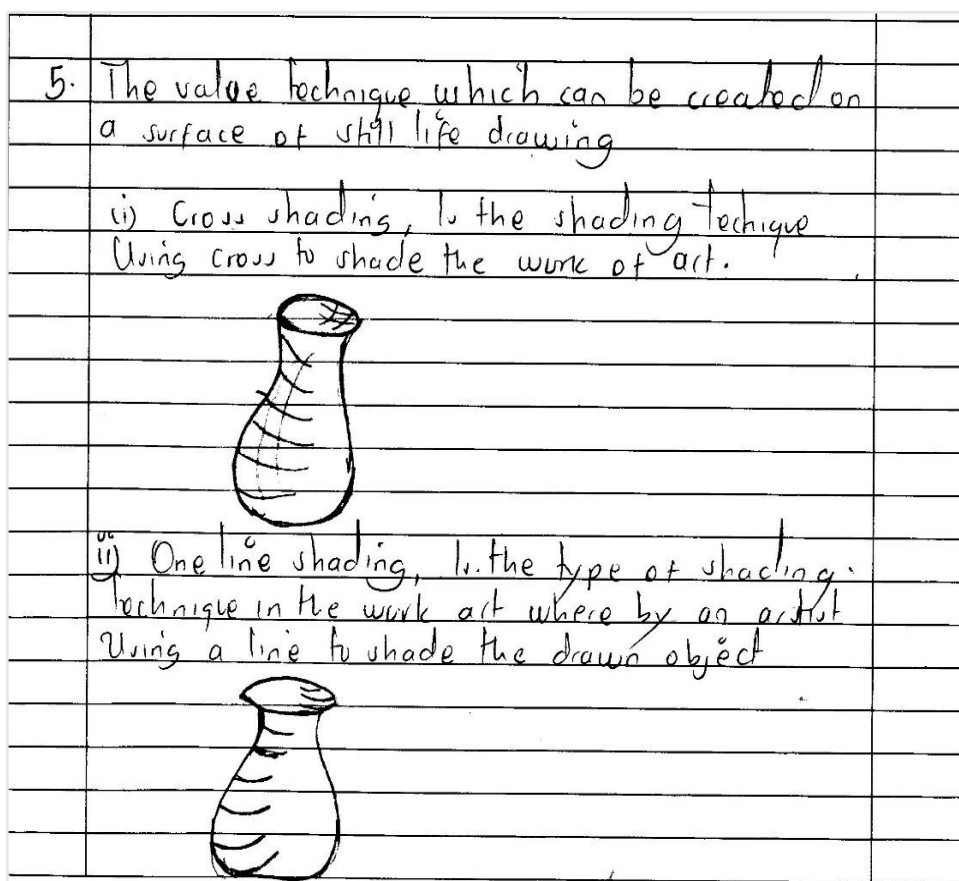 5. The value technique which can be created on
a surface of still life drawing
(i) Cross shading, Is the shading Techique
Using cross to shade the work of art.
ii) One line shading, Is the type of shading.
Technique in the work art where by an artist
Using a line to shade the drawn object